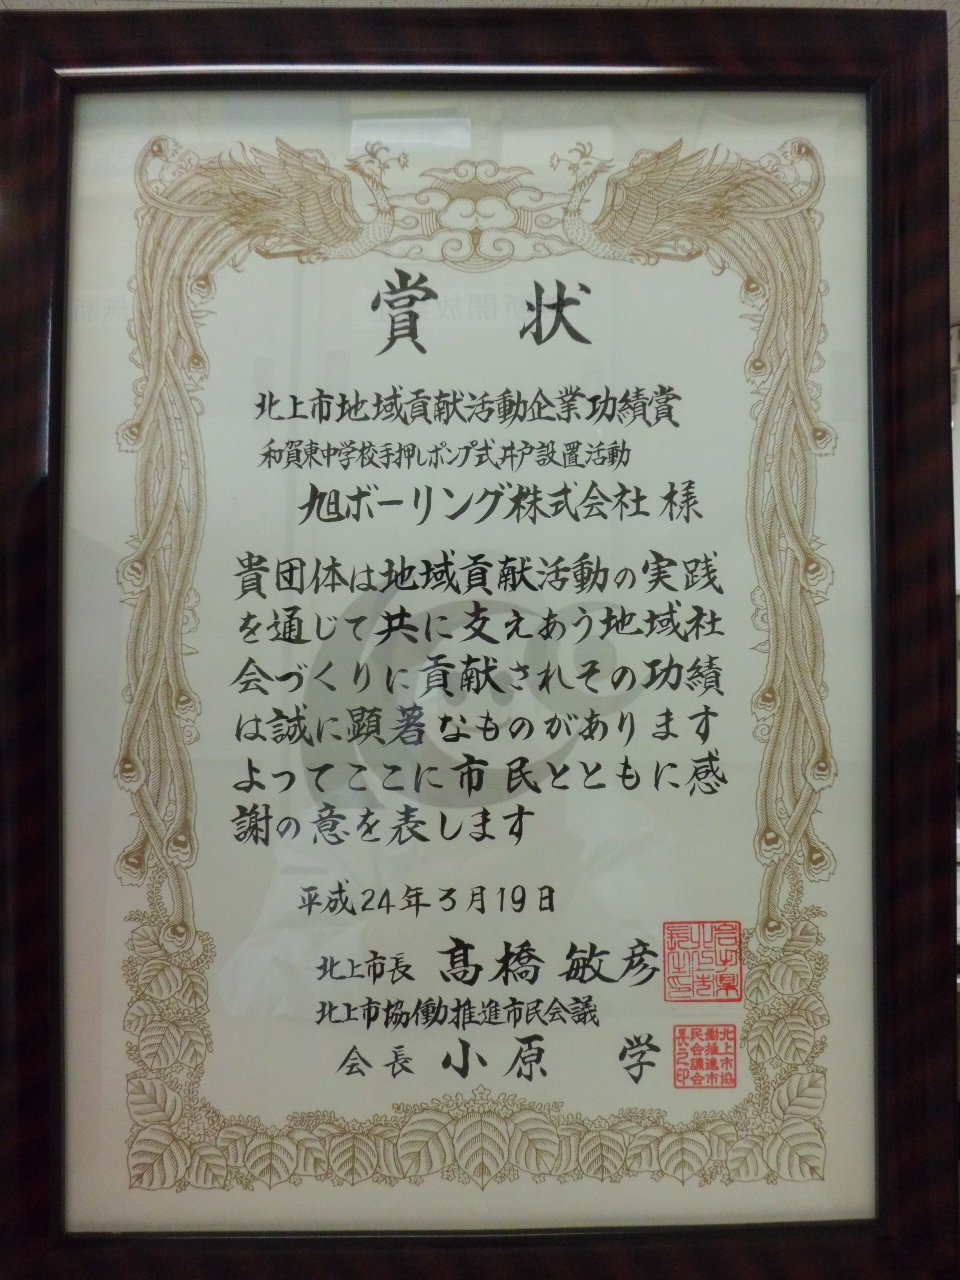 賞状
北上市地域貢献活動企業功績賞
和賀東中学校手押しポンプ式井戸設置活動
旭ボーリング株式会社 様
貴団体は地域貢献活動の実践
を通じて共に支えあう地域社
会づくりに貢献されその功績
は誠に顕著なものがあります
よってここに市民とともに感
謝の意を表します
平成24年3月19日
北上市長 髙橋 敏彦
北上市協働推進市民会議
会長 小原 学
北上市協
働推進市
民会議会
長之印